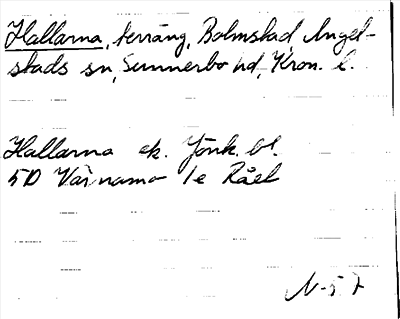 Hallarna, terräng, Bolmstad, Angel-
stads sn, Sunnerbo hd, Kron. l.
Hallarna ek. Jönk. bl.
5D Värnamo 1e Råel
N-57